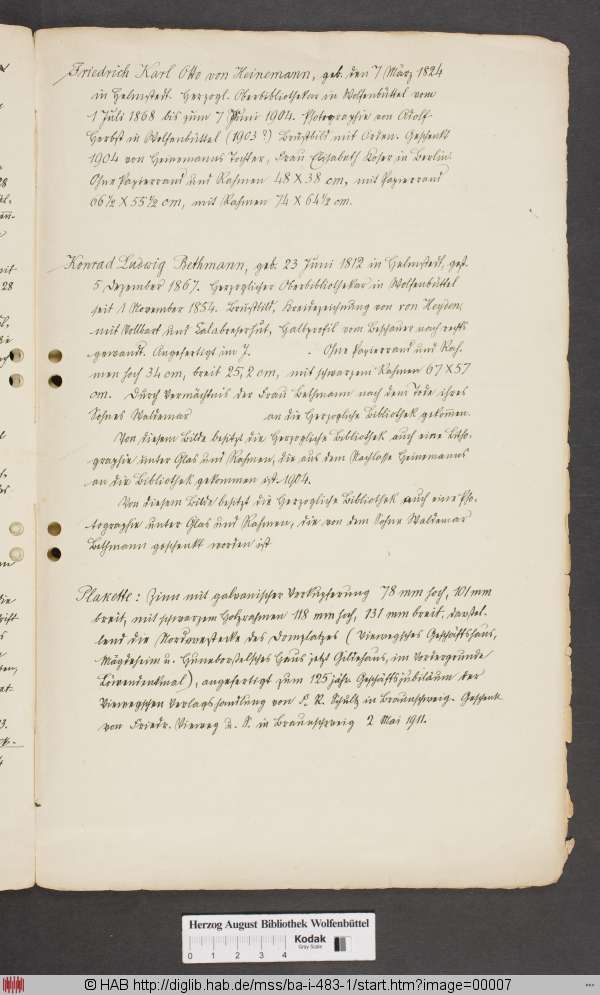 Friedrich Karl Otto von Heinemann, geb. den 7 März 1824
in Helmstedt. Herzogl. Oberbibliothekar in Wolfenbüttel vom
1 Juli 1868 bis zum 7 Juni 1904. Photographie von Adolf
Herbst in Wolfenbüttel (1903?) Brustbild mit Orden. Geschenkt
1904 von Heinemanns Tochter, Frau Elisabeth Koser in Berlin.
Ohne Papierrand und Rahmen 48 X 38 cm, mit Papierrand
66½ X 55½ cm, mit Rahmen 74 X 64½ cm.
Konrad Ludwig Bethmann, geb. 23 Juni 1812 in Helmstedt, gest.
5 Dezember 1867. Herzoglicher Oberbibliothekar in Wolfenbüttel
seit 1 November 1854. Brustbild, Kreidezeichnung von von Heyden,
mit Vollbart und Kalabreserhut, Halbprofil vom Beschauer nach rechts
gewandt. Angefertigt im J. . Ohne Papierrand und Rah-
men hoch 34 cm, breit 25,2 cm, mit schwarzem Rahmen 67 X 57
cm. Durch Vermächtnis der Frau Bethmann nach dem Tode ihres
Sohnes Waldemar an die Herzogliche Bibliothek gekommen.
Von diesem Bilde besitzt die Herzogliche Bibliothek auch eine Litho-
graphie unter Glas und Rahmen, die aus dem Nachlasse Heinemanns
an die Bibliothek gekommen ist. 1904.
Von diesem Bilde besitzt die Herzogliche Bibliothek auch eine Pho-
tographie unter Glas und Rahmen, die von dem Sohne Waldemar
Bethmann geschenkt worden ist
Plakette: Zinn mit galvanischer Verkupferung 78 mm hoch, 101 mm
breit, mit schwarzem Holzrahmen 118 mm hoch, 131 mm breit, darstel-
lend die Nordwestecke des Domplatzes (Viewegsches Geschäftshaus,
Mägdeheim u. Hunebostelsches Haus jetzt Gildehaus, im Vordergrunde
Löwendenkmal), angefertigt zum 125 jähr. Geschäftsjubiläum der
Viewegschen Verlagshandlung von R. Schultz in Braunschweig. Geschenk
von Friedr. Vieweg u. S. in Braunschweig 2 Mai 1911.
Herzog August Bibliothek Wolfenbüttel
0 1 2 3 4
Kodak
Gray Scale
© HAB http://diglib.hab.de/mss/ba-i-483-1/start.htm?image=00007